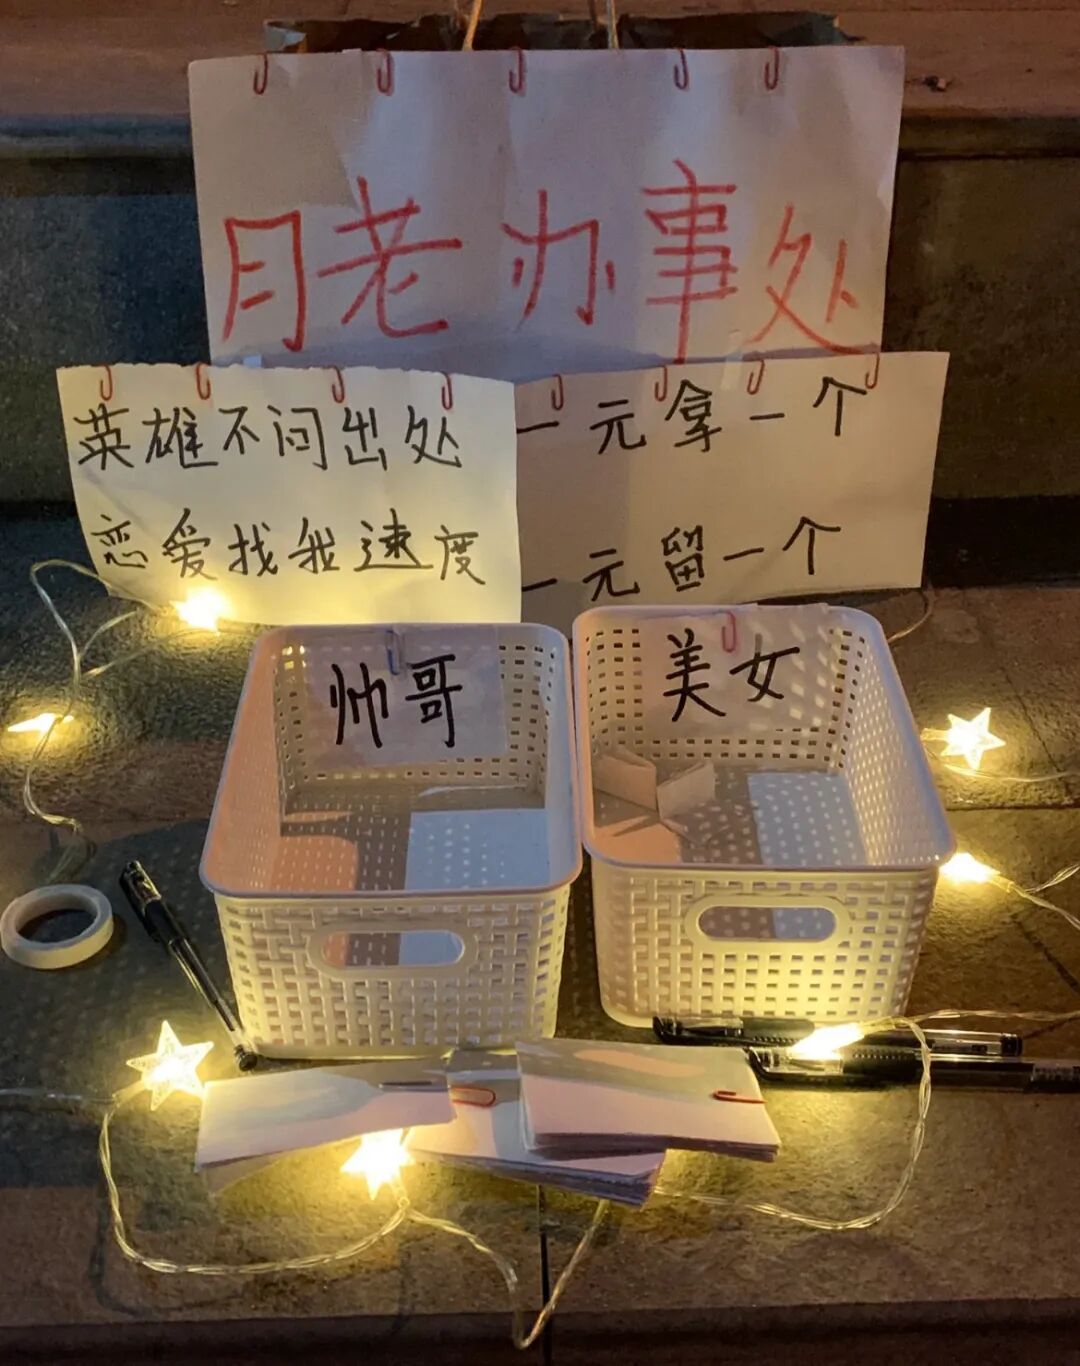 月老办事处
英雄不问出处
恋爱找我速度
一元拿一个
一元留一个
帅哥
美女